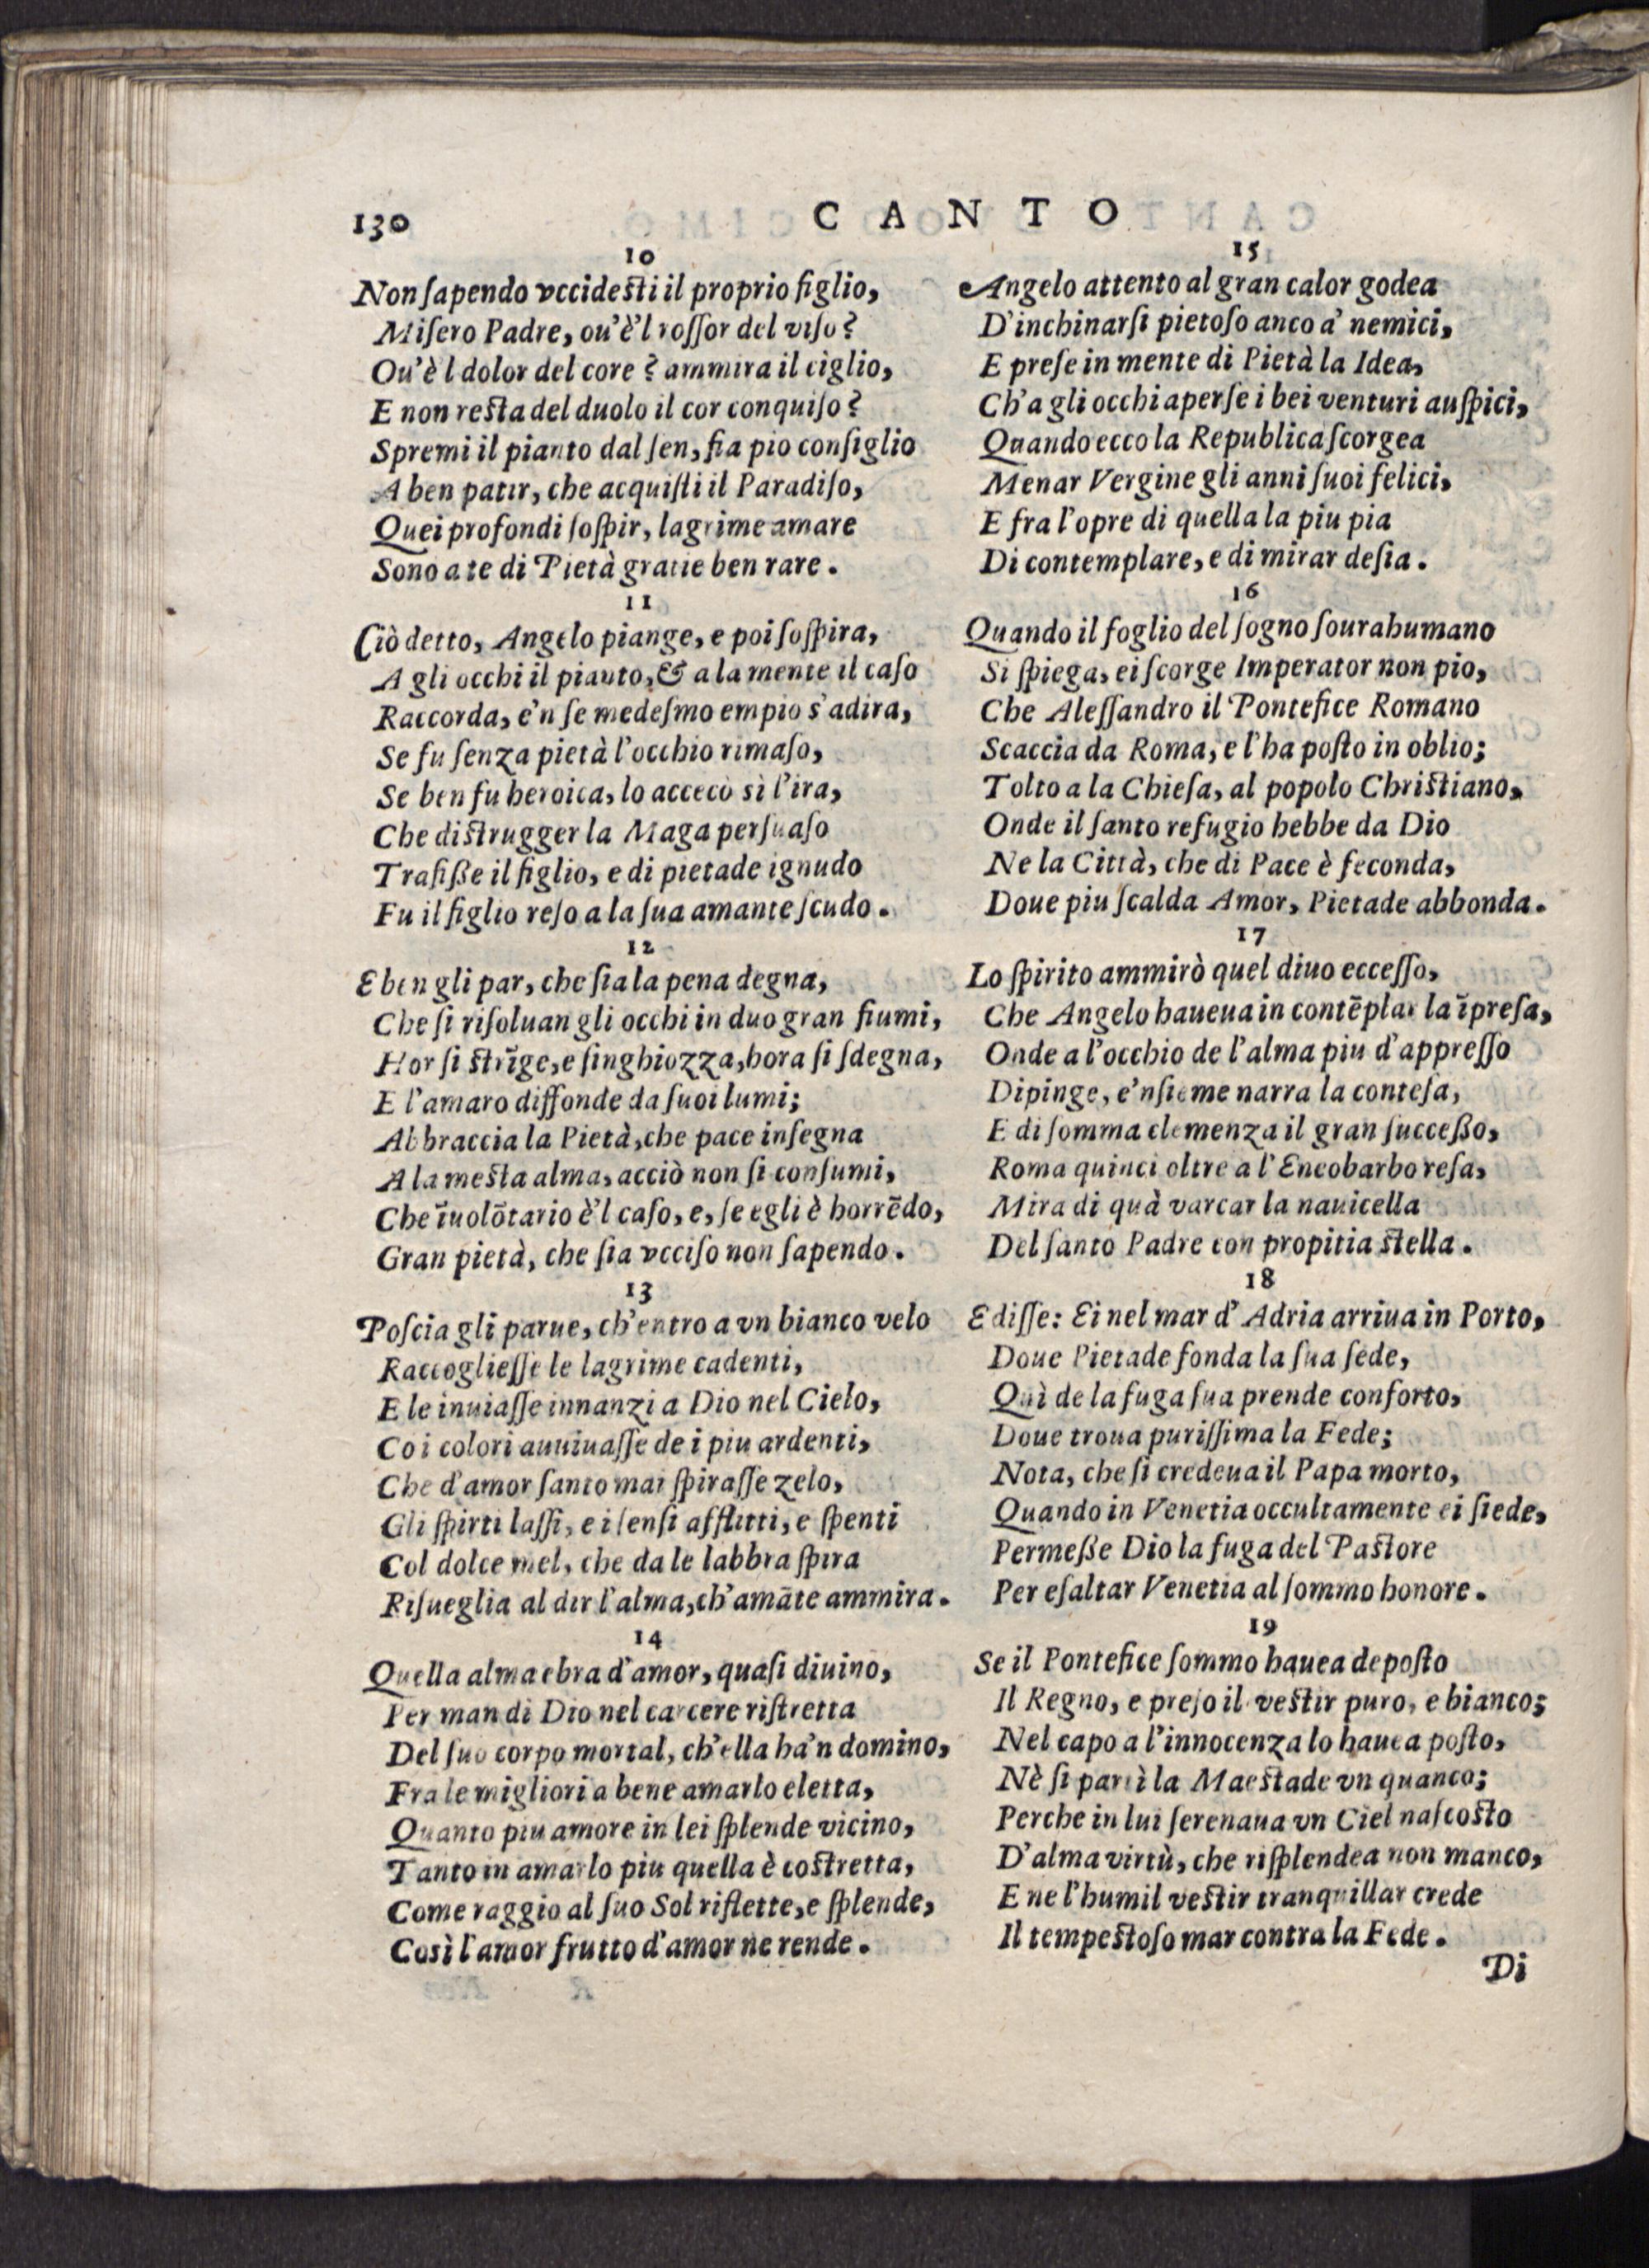 130
CANTO
10
Non ſapendo vccideſti il proprio figlio,
Miſero Padre, ou'è'l roſſor del viſo?
Ou'è l dolor del core? ammira il ciglio,
E non reſta del duolo il cor conquiſo?
Spremi il pianto dal ſen, fia pio conſiglio
A ben patir, che acquiſti il Paradiſo,
Quei profondi ſoſpir, lagrime amare
Sono a te di Pietà gratie ben rare.
11
Ciò detto, Angelo piange, e poi ſoſpira,
A gli occhi il pianto, & a la mente il caſo
Raccorda, e'n ſe medeſmo empio s'adira,
Se fu ſenza pietà l'occhio rimaſo,
Se ben fu heroica, lo accecò sì l'ira,
Che diſtrugger la Maga perſuaſo
Trafiße il figlio, e di pietade ignudo
Fu il figlio reſo a la ſua amante ſcudo.
12
E ben gli par, che ſia la pena degna,
Che ſi riſoluan gli occhi in duo gran fiumi,
Hor ſi ſtrĩge, e ſinghiozza, hora ſi ſdegna,
E l'amaro diffonde da ſuoi lumi;
Abbraccia la Pietà, che pace inſegna
A la meſta alma, acciò non ſi conſumi,
Che ĩuolõtario è'l caſo, e, ſe egli è horrẽdo,
Gran pietà, che ſia vcciſo non ſapendo.
13
Poſcia gli parue, ch'entro a vn bianco velo
Raccoglieſſe le lagrime cadenti,
E le inuiaſſe innanzi a Dio nel Cielo,
Co i colori auuiuaſſe de i piu ardenti,
Che d'amor ſanto mai ſpiraſſe zelo,
Gli ſpirti laſſi, e i ſenſi afflitti, e ſpenti
Col dolce mel, che da le labbra ſpira
Riſueglia al dir l'alma, ch'amãte ammira.
14
Quella alma ebra d'amor, quaſi diuino,
Per man di Dio nel carcere riſtretta
Del ſuo corpo mortal, ch'ella ha'n domino,
Fra le migliori a bene amarlo eletta,
Quanto piu amore in lei ſplende vicino,
Tanto in amarlo piu quella è coſtretta,
Come raggio al ſuo Sol riflette, e ſplende,
Così l'amor frutto d'amor ne rende.
15
Angelo attento al gran calor godea
D'inchinarſi pietoſo anco a' nemici,
E preſe in mente di Pietà la Idea,
Ch'a gli occhi aperſe i bei venturi auſpici,
Quando ecco la Republica ſcorgea
Menar Vergine gli anni ſuoi felici,
E fra l'opre di quella la piu pia
Di contemplare, e di mirar deſia.
16
Quando il foglio del ſogno ſourahumano
Si ſpiega, ei ſcorge Imperator non pio,
Che Aleſſandro il Pontefice Romano
Scaccia da Roma, e l'ha poſto in oblio;
Tolto a la Chieſa, al popolo Chriſtiano,
Onde il ſanto refugio hebbe da Dio
Ne la Città, che di Pace è feconda,
Doue piu ſcalda Amor, Pietade abbonda.
17
Lo ſpirito ammirò quel diuo ecceſſo,
Che Angelo haueua in contẽplar la ĩpreſa,
Onde a l'occhio de l'alma piu d'appreſſo
Dipinge, e'nſieme narra la conteſa,
E di ſomma clemenza il gran ſucceßo,
Roma quinci oltre a l'Eneobarbo reſa,
Mira di quà varcar la nauicella
Del ſanto Padre con propitia ſtella.
18
E diſſe: Ei nel mar d'Adria arriua in Porto,
Doue Pietade fonda la ſua ſede,
Quì de la fuga ſua prende conforto,
Doue troua puriſſima la Fede;
Nota, che ſi credeua il Papa morto,
Quando in Venetia occultamente ei ſiede,
Permeße Dio la fuga del Paſtore
Per eſaltar Venetia al ſommo honore.
19
Se il Pontefice ſommo hauea depoſto
Il Regno, e preſo il veſtir puro, e bianco;
Nel capo a l'innocenza lo hauea poſto,
Nè ſi partì la Maeſtade vn quanco;
Perche in lui ſerenaua vn Ciel naſcoſto
D'alma virtù, che riſplendea non manco,
E ne l'humil veſtir tranquillar crede
Il tempeſtoſo mar contra la Fede.
Di